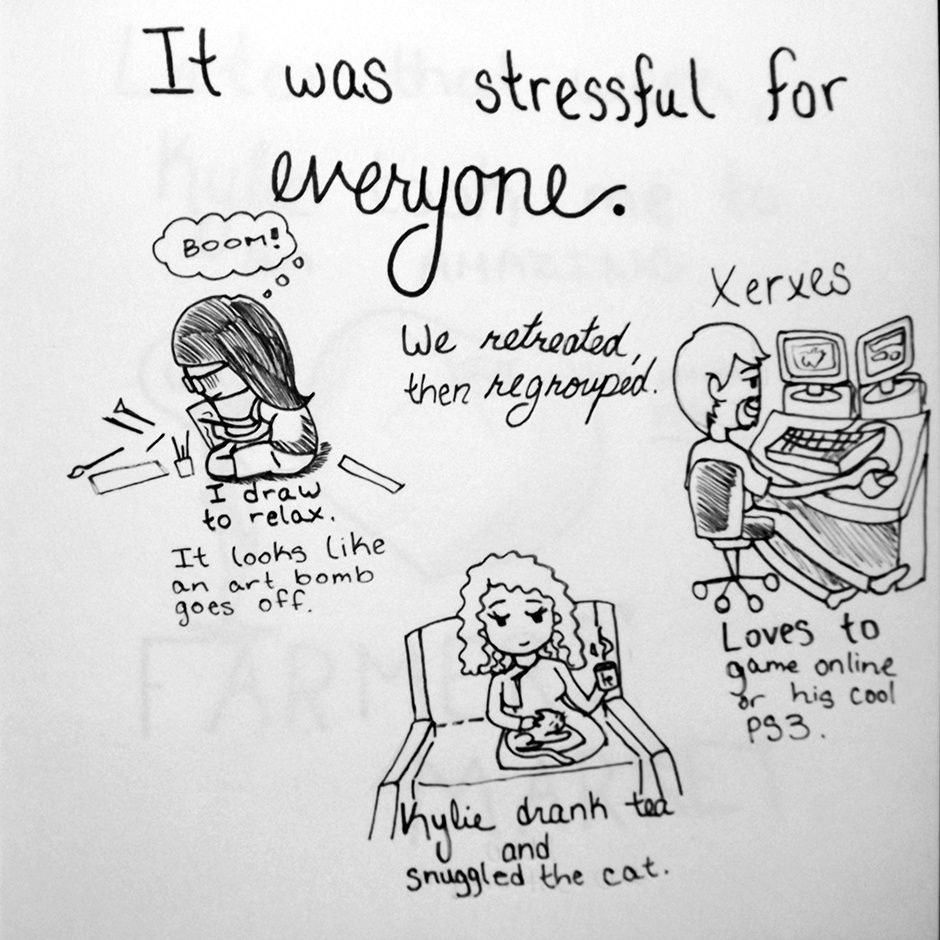 It was stressful for
everyone.
BOOM!
We retreated,
then regrouped.
Xerxes
I draw
to relax.
It looks like
an art bomb
goes off.
Loves to
game online
or his cool
PS3.
Kylie drank tea
and
snuggled the cat.